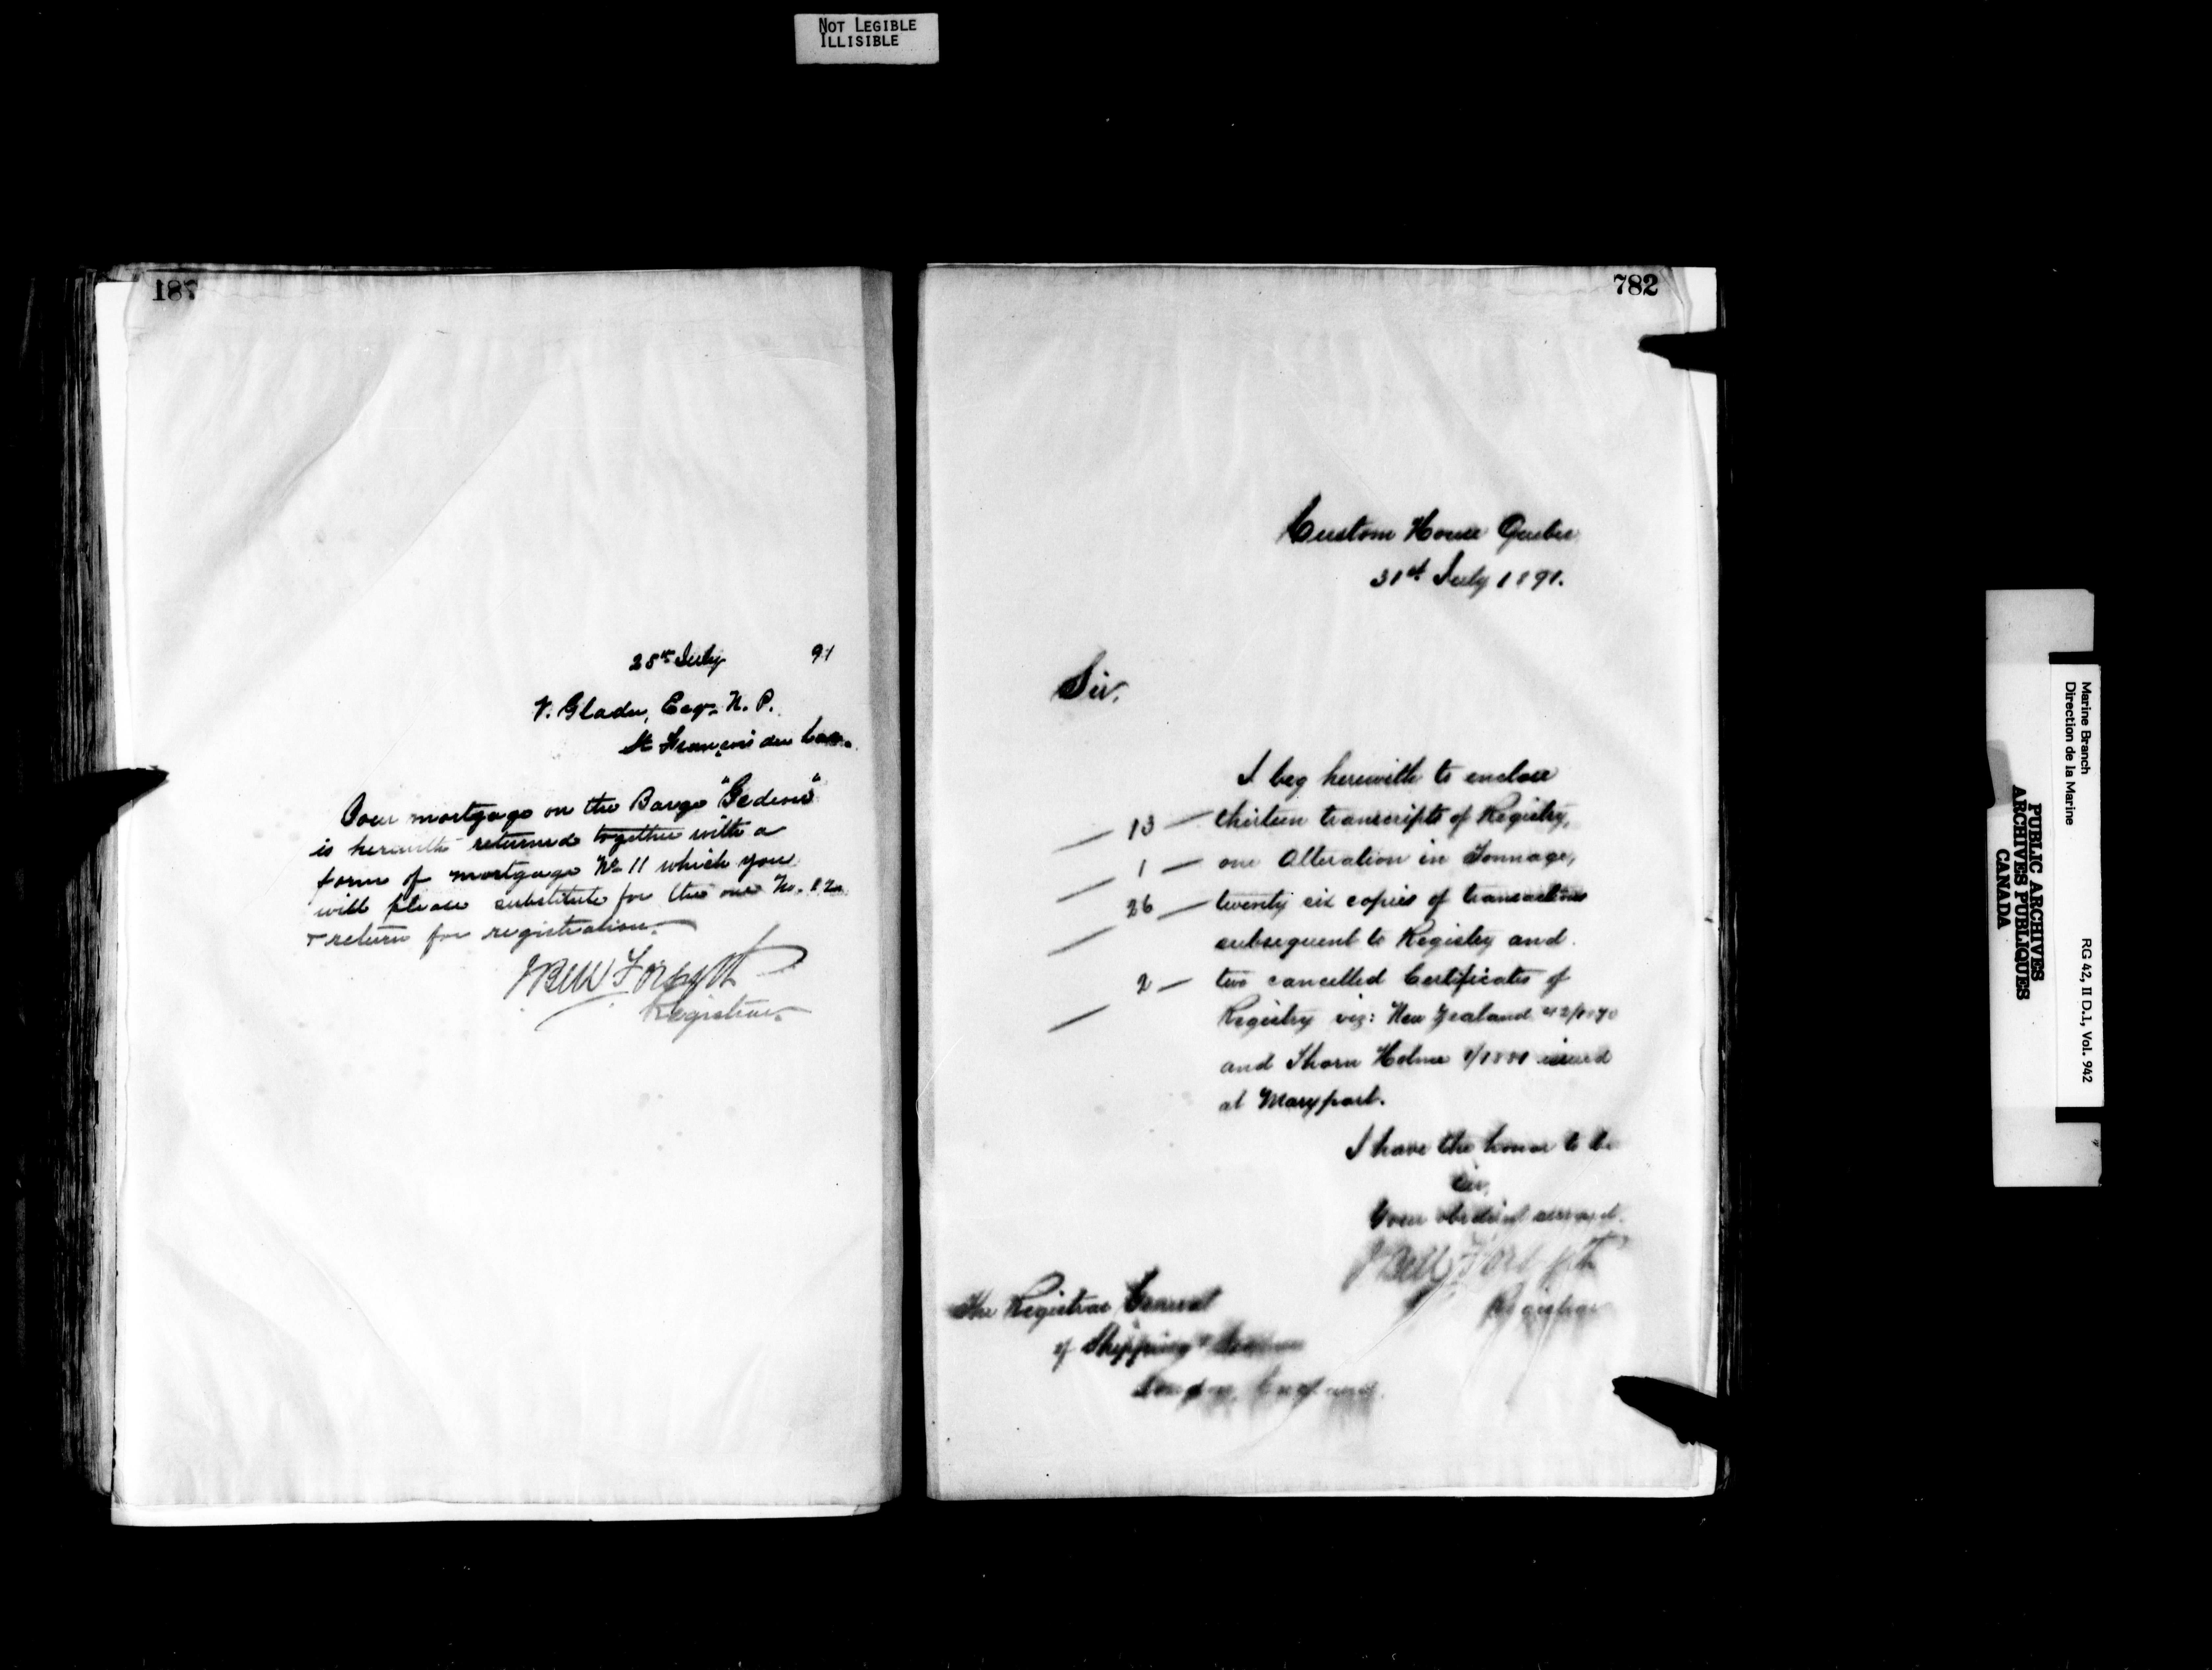 NOT LEGIBLE
ILLISIBLE
187
25th July 91
V. Gladu, Esqr. N. P.
St François du Lac.
Your mortgage on the Barge "
is herewith returned together with a
form of mortgage No 11 which you
will please substitute for the one No. 12
& return for registration.
J Bell Forsyth
Registrar
782
Custom House Quebec
31st July 1891.
Sir,
I beg herewith to enclose
13 — thirteen transcripts of Registry,
1 — one Alteration in Tonnage,
26 — twenty six copies of transactions
subsequent to Registry and
2 — two cancelled Certificates of
Registry viz: New Zealand
and Thorn Holme issued
at Maryport.
I have the honor to be
Sir,
Your obedient servant
J Bell Forsyth
Registrar
The Registrar General
of Shipping & Seamen
London, England.
Marine Branch
Direction de la Marine
RG 42, II D.1, Vol. 942
PUBLIC ARCHIVES
ARCHIVES PUBLIQUES
CANADA